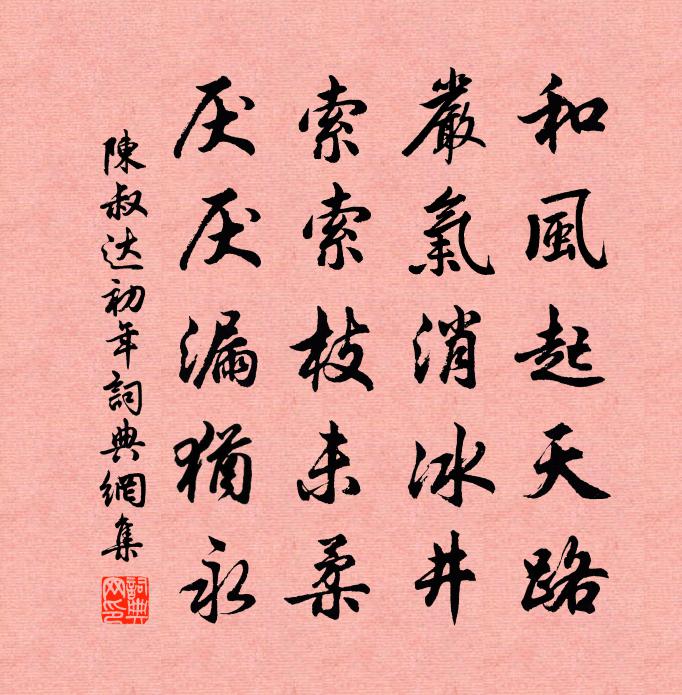 和風起天路
嚴氣消冰井
索索枝未柔
厌厌漏猶永
陳叔达初年詞典網集
詞典網印